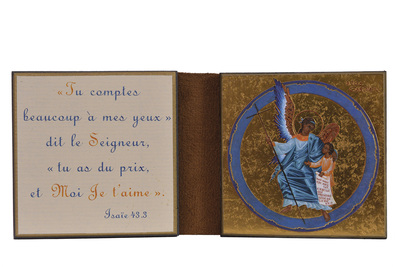 « Tu comptes
beaucoup à mes yeux »
dit le Seigneur,
« tu as du prix,
et Moi Je t'aime ».
Isaïe 43.3